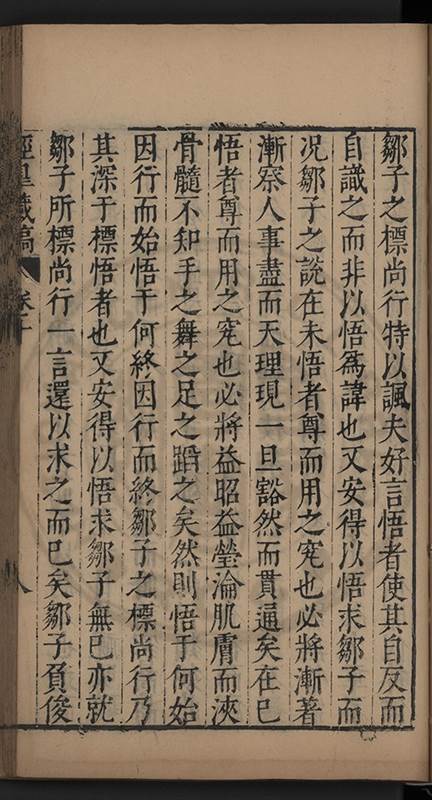 鄒子之標尚行特以諷夫好言悟者使其自反而
自識之而非以悟爲諱也又安得以悟求鄒子而
况鄒子之說在未悟者尊而用之究也必將漸著
漸察人事盡而天理現一旦豁然而貫通矣在已
悟者尊而用之究也必將益昭益瑩淪肌膚而浹
骨髓不知手之舞之足之蹈之矣然則悟于何始
因行而始悟于何終因行而終鄒子之標尚行乃
其深于標悟者也又安得以悟求鄒子無已亦就
鄒子所標尚行一言還以求之而已矣鄒子負俊
涇皐藏稿 卷十
八